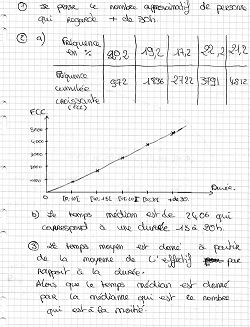 ① se pense le nombre approximatif de personne
qui regarde + de 30h.
② a)
Fréquence en % 20,2 19,2 17,2 22,2 21,2
Fréquence cumulée croissante (FCC) 972 1896 2722 3791 4812
FCC
5000
4000
3000
2000
1000
0
+ de 30
Durée
b) Le temps médian est de 2406 qui
correspond à une durée 15 à 20h.
③ Le temps moyen est donné à partir
de la moyenne de l'effectif par
rapport à la durée.
Alors que le temps médian est donné
par la médianne qui est le nombre
qui est à la moitié.